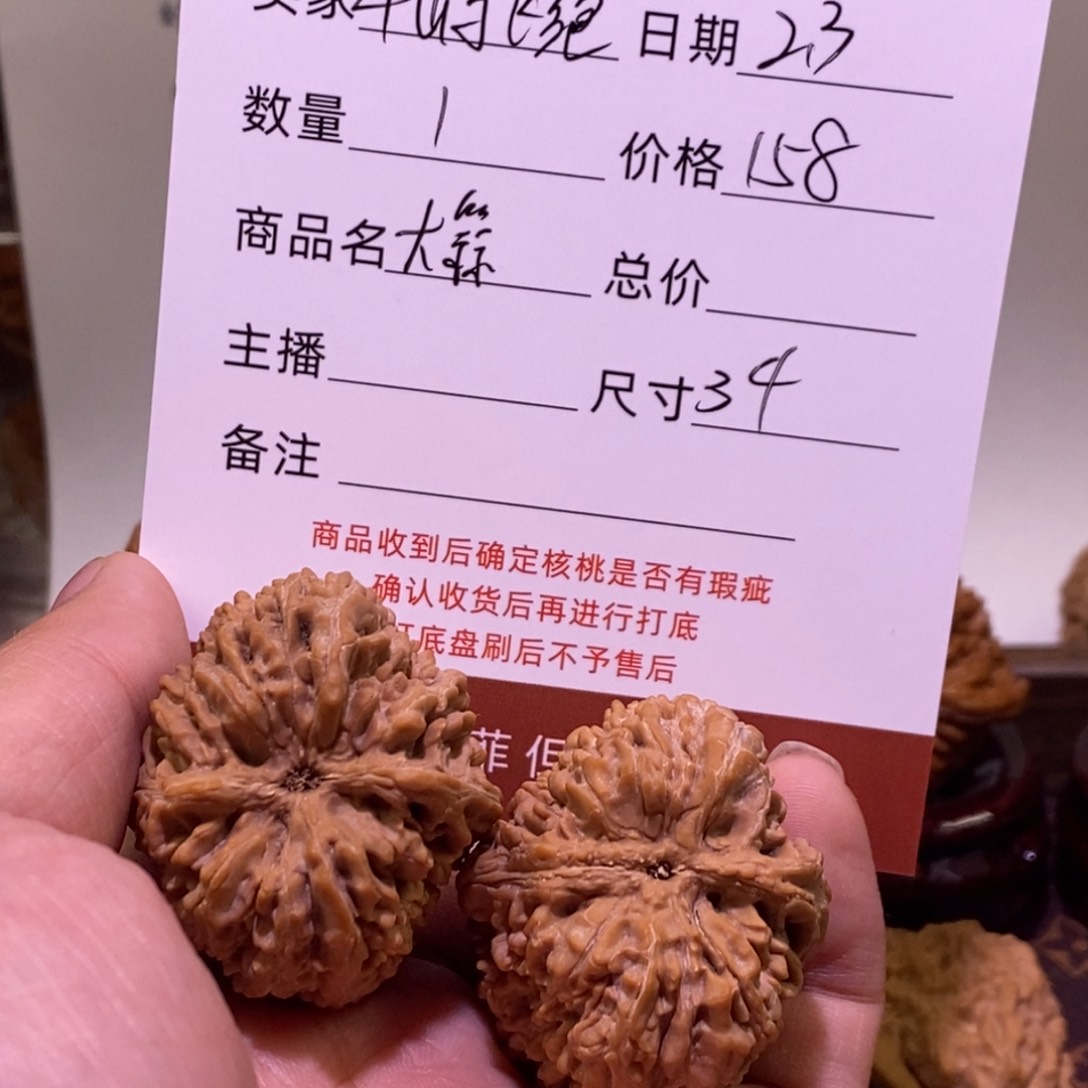 日期 23
数量 1 价格 158
商品名 大 总价
主播 尺寸 34
备注
商品收到后确定核桃是否有瑕疵
确认收货后再进行打底
打底盘刷后不予售后
菲但